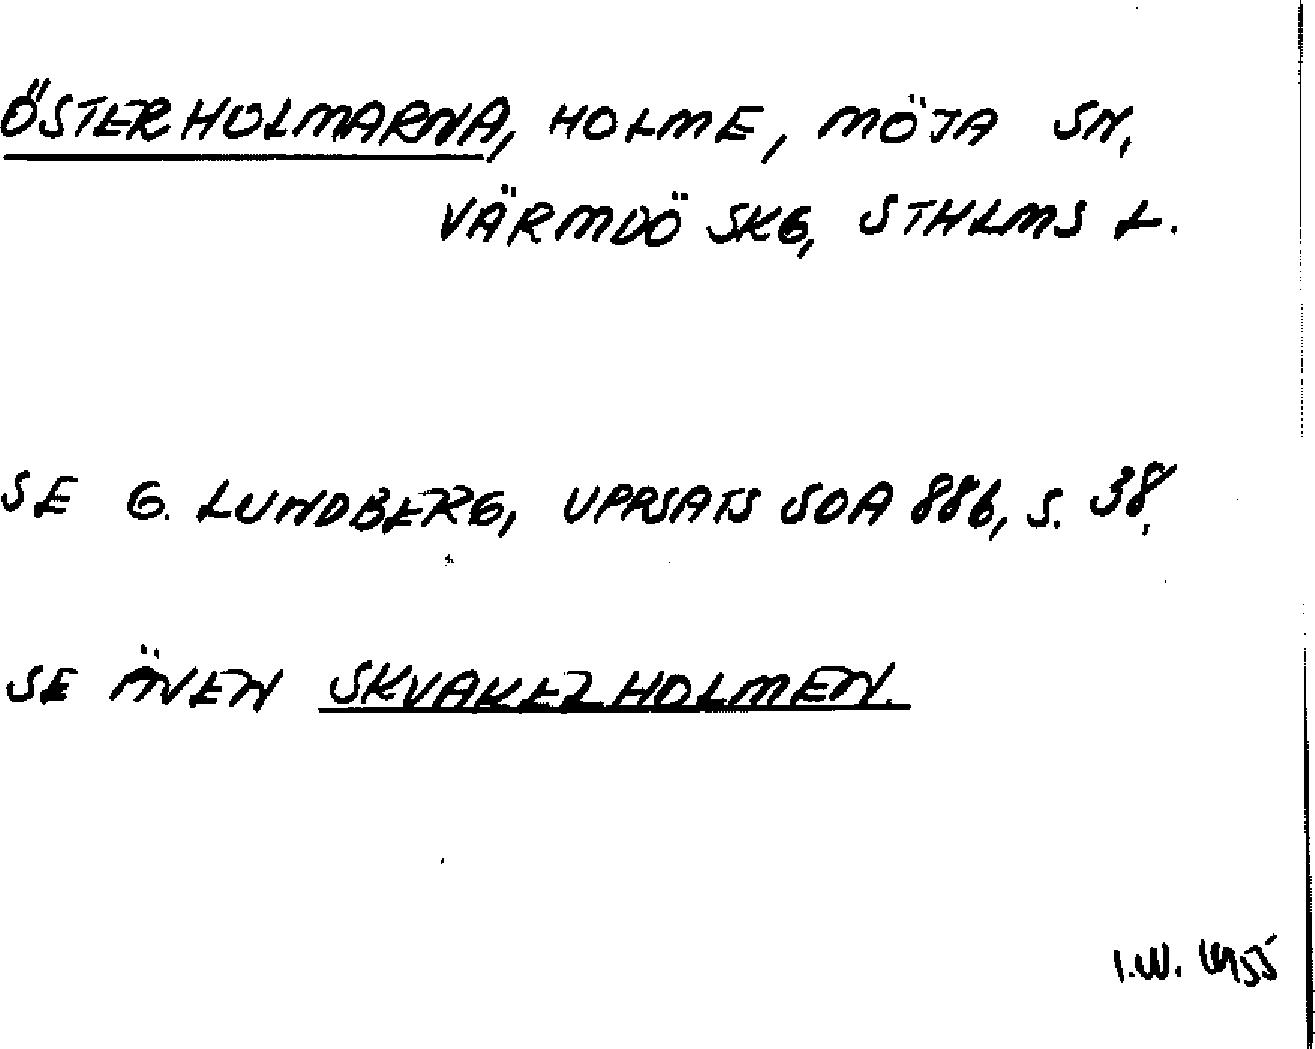 ÖSTERHOLMARNA, HOLME, MÖJA SN,
VÄRMDÖ SKG, STHLMS L.
SE G. LUNDBERG, UPPSATS SOA 886, S. 38.
SE ÄVEN SKVAKELHOLMEN.
I.W. 1955